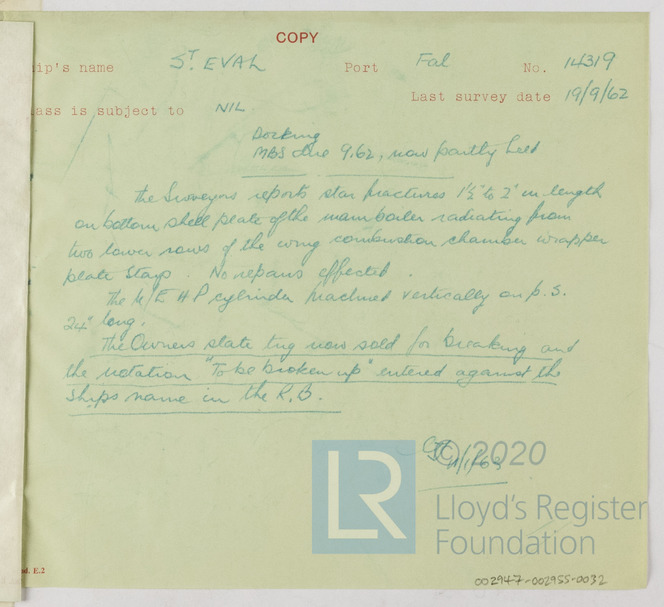 COPY
ip's name ST. EVAL Port Fal No. 14319
Last survey date 19/9/62
ass is subject to NIL.
Docking
MBS due 9.62, now partly held
The Surveyors reports star fractures 1½" to 2" in length
on bottom shell plate of the main boiler radiating from
two lower rows of the wing combustion chamber wrapper
plate stays. No repairs effected.
The M/E H P cylinder fractured vertically on p.s.
24" long.
The Owners state tug now sold for breaking and
the notation "To be broken up" entered against the
ships name in the R.B.
11/1/63
© 2020
LR
Lloyd's Register
Foundation
d. E.2
002947-002955-0032